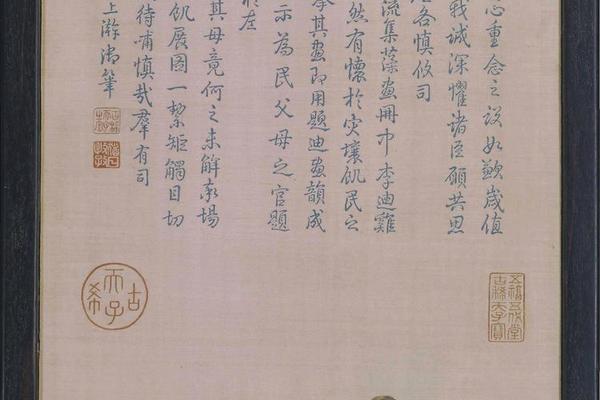 心重念之設如歉歲值
我誠深懼諸臣願共思
各慎攸司
流集藻畫冊中李迪雞
然有懷於灾壤飢民之
其畫即用題迪畫韻成
示為民父母之官題
於左
其母竟何之未解索場
飢展圖一絜矩觸目切
待哺慎哉羣有司
上澣御筆
古稀天子
五福五代堂古稀天子寶